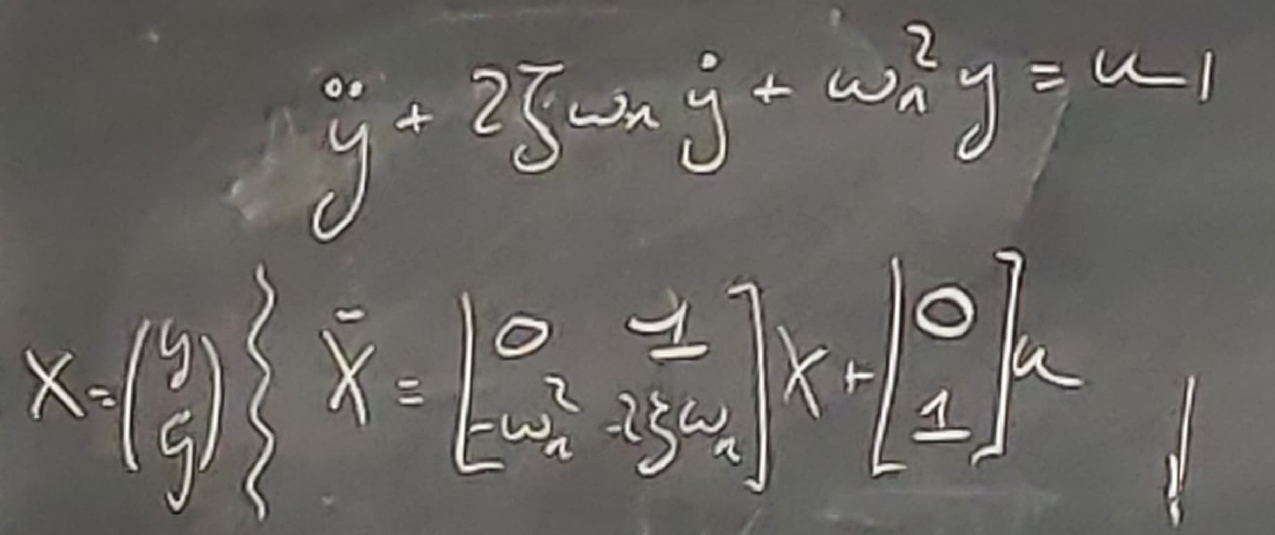 ÿ + 2ζωₙ ẏ + ωₙ² y = u 1
X = (y ẏ) } X̄ = [0 1; -ωₙ² -2ζωₙ] X + [0; 1] u